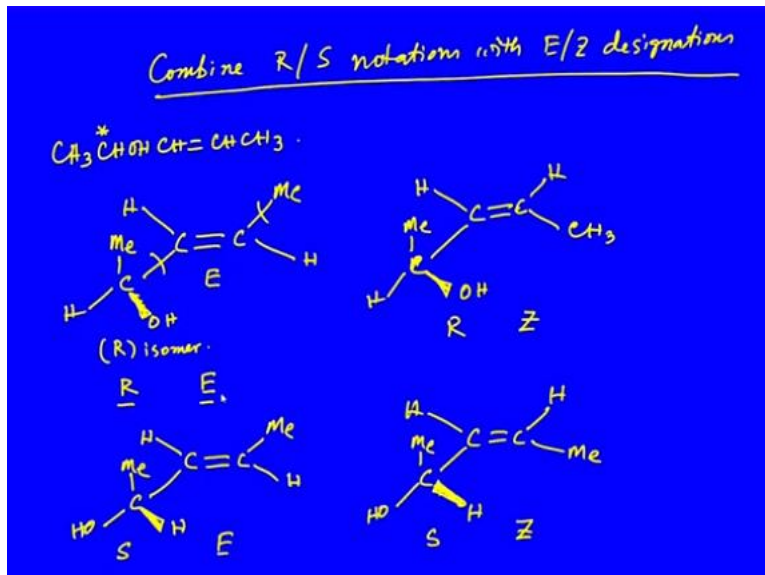 Combine R/S notations with E/Z designations
*
CH3CHOHCH=CHCH3.
H Me
Me C=C
H C E H
OH
(R) isomer.
R E.
H H
Me C=C
H C CH3
OH
R Z
H Me
Me C=C
HO C H H
S E
H H
Me C=C Me
HO C H
S Z